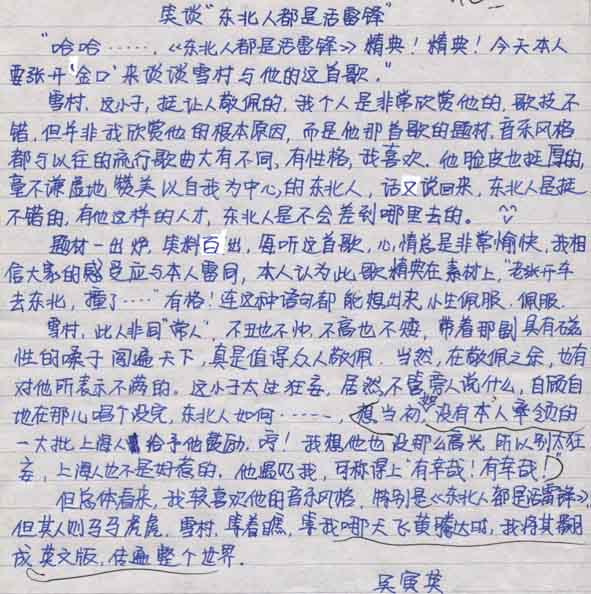 笑谈"东北人都是活雷锋"
"哈哈……,《东北人都是活雷锋》精典!精典!今天本人
要张开'金口'来谈谈雪村与他的这首歌."
雪村,这小子,挺让人敬佩的,我个人是非常欣赏他的,歌技不
错,但并非我欣赏他的根本原因,而是他那首歌的题材,音乐风格
都与以往的流行歌曲大有不同,有性格,我喜欢.他脸皮也挺厚的,
毫不谦虚地赞美以自我为中心的东北人,话又说回来,东北人是挺
不错的,有他这样的人才,东北人是不会差到哪里去的。
题材一出炉,笑料百出,每听这首歌,心情总是非常愉快,我相
信大家的感受应与本人雷同,本人认为此歌精典在素材上,"老张开车
去东北,撞了……"有格!连这种语句都能想出来,小生佩服,佩服.
雪村,此人非同"常人",不丑也不帅,不高也不矮,带着那副具有磁
性的嗓子闯遍天下,真是值得众人敬佩,当然,在敬佩之余,也有
对他所表示不满的。这小子太过狂妄,居然不管旁人说什么,自顾自
地在那儿唱个没完,东北人如何……,想当初,没有本人率领的
一大批上海人给予他鼓励,哼!我想他也没那么高兴,所以别太狂
妄,上海人也不是好惹的,他遇见我,可称得上"有幸哉!有幸哉!"
但总体看来,我较喜欢他的音乐风格,特别是《东北人都是活雷锋》
但其人则马马虎虎.雪村,等着瞧,等我哪天飞黄腾达时,我将其翻
成英文版,传遍整个世界.
吴寅英